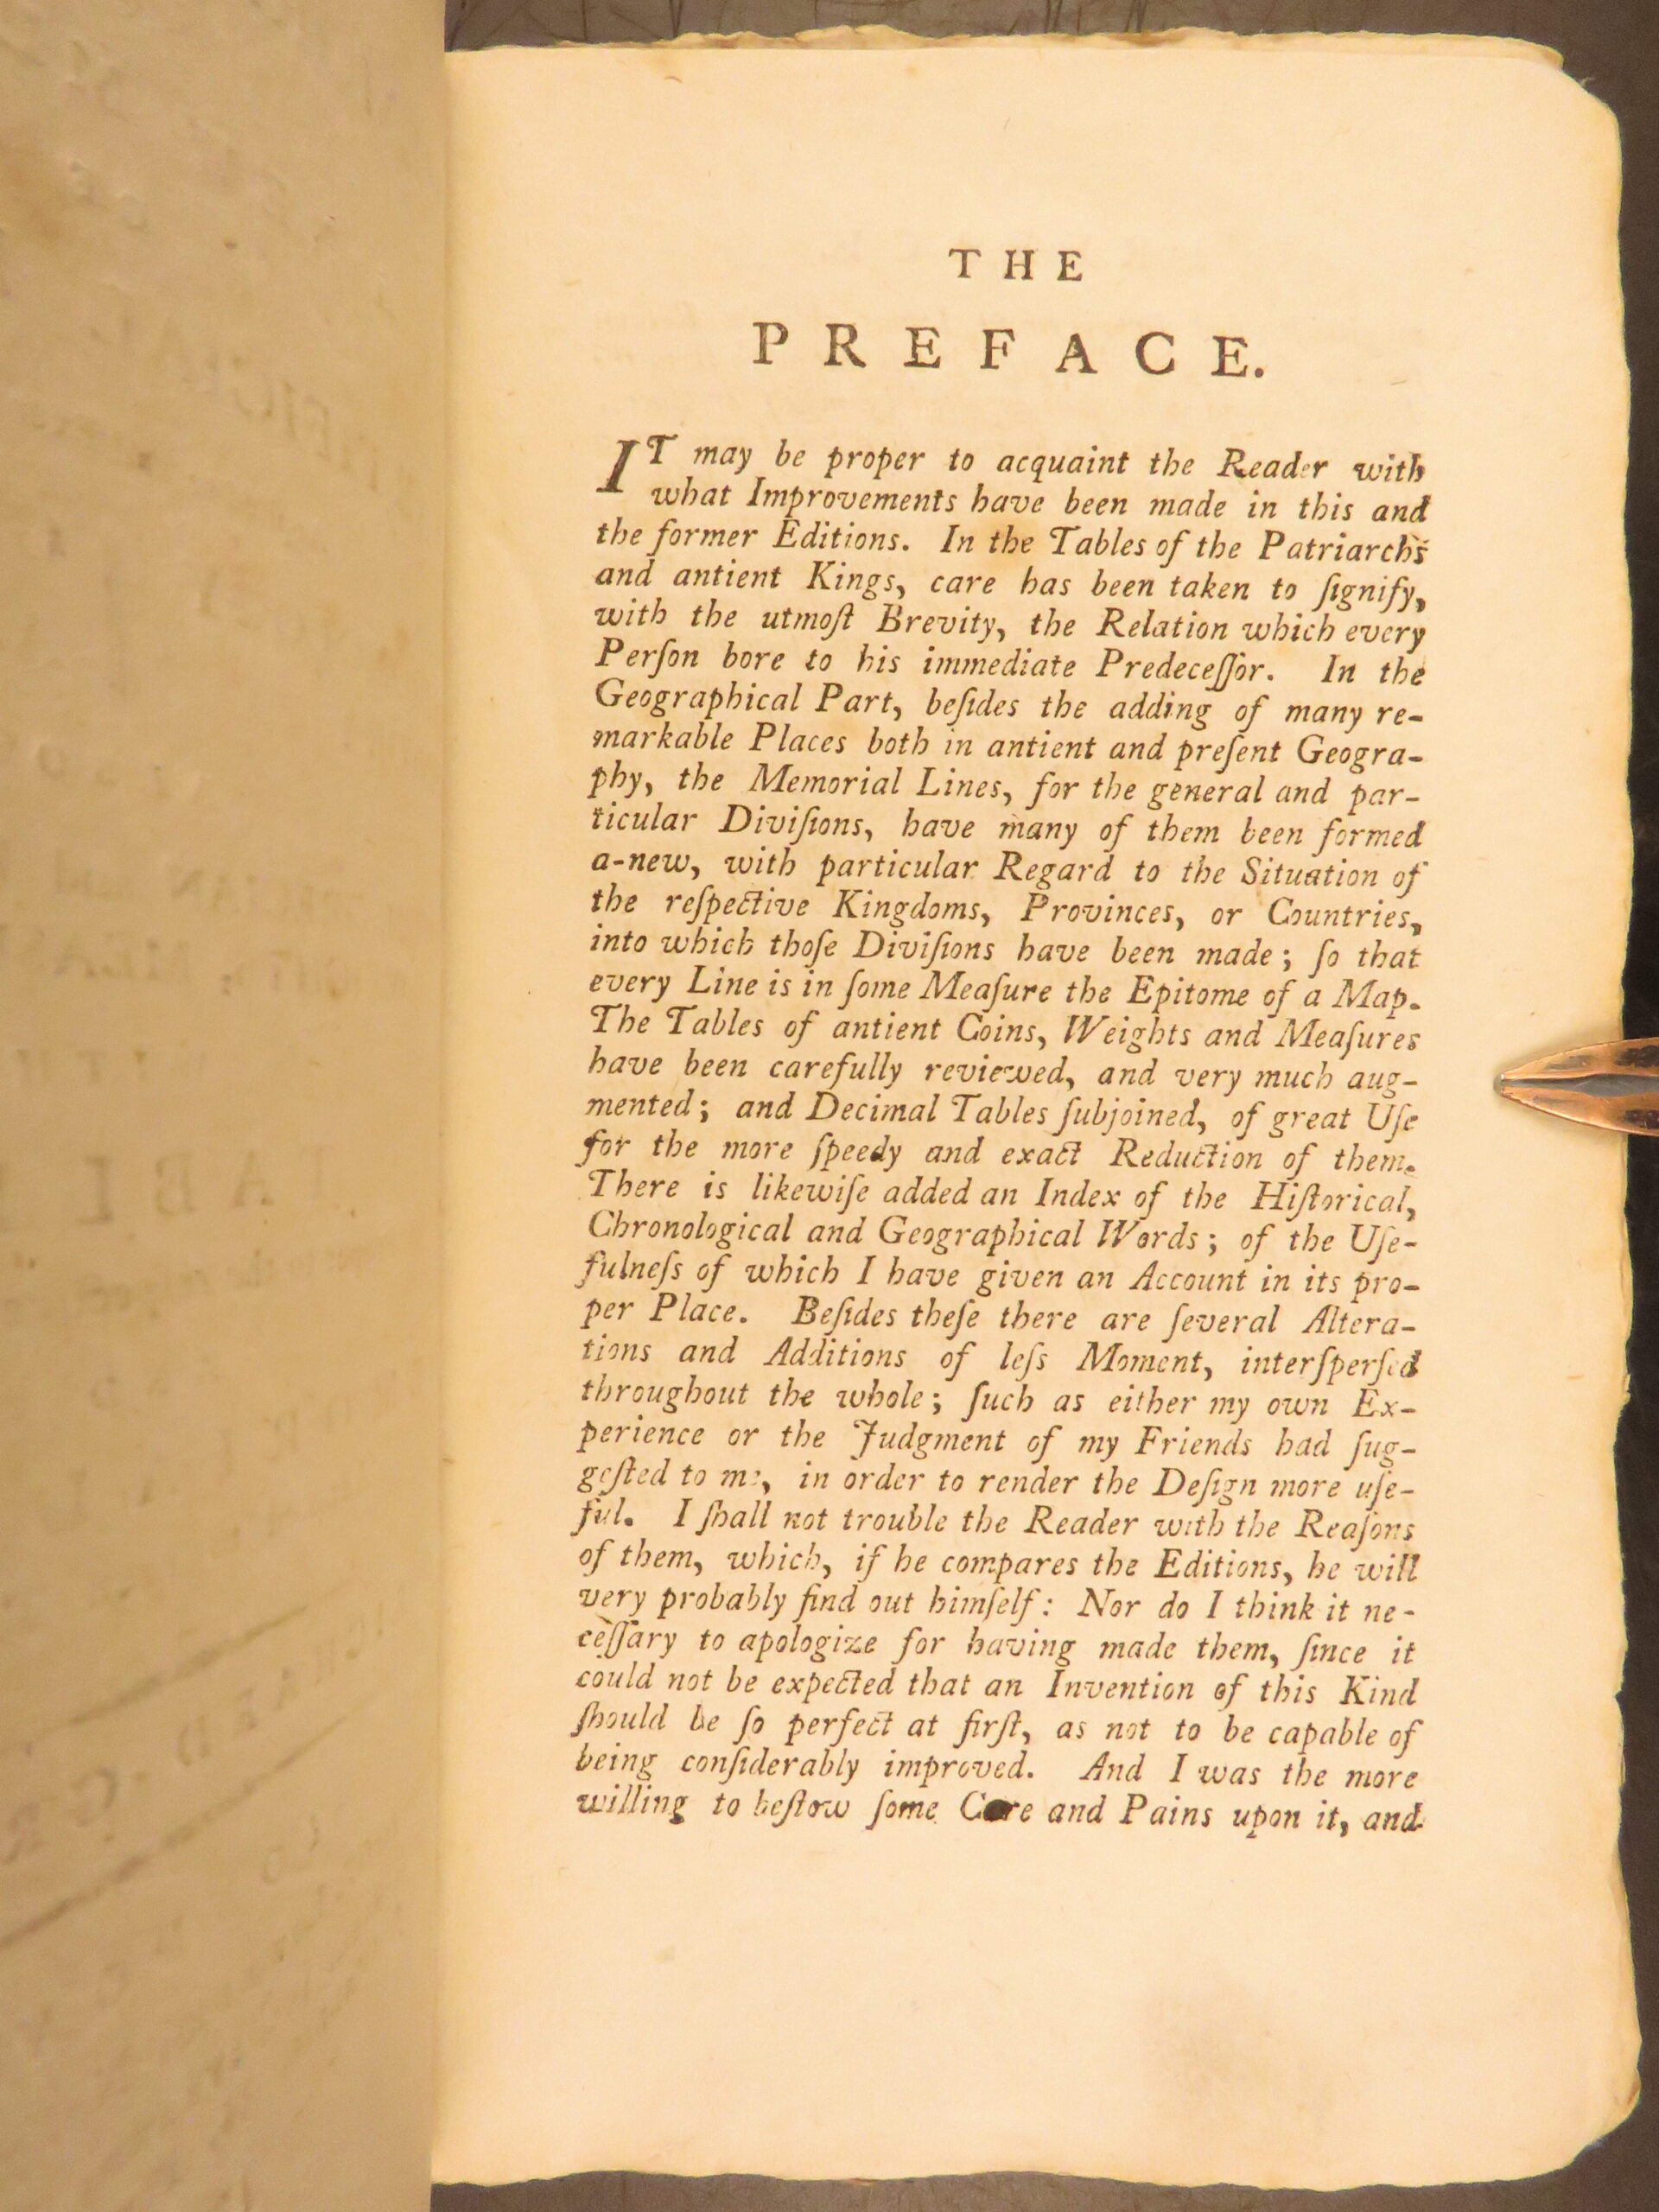 THE
PREFACE.
IT may be proper to acquaint the Reader with
what Improvements have been made in this and
the former Editions. In the Tables of the Patriarchs
and antient Kings, care has been taken to ſignify,
with the utmoſt Brevity, the Relation which every
Perſon bore to his immediate Predeceſſor. In the
Geographical Part, beſides the adding of many re-
markable Places both in antient and preſent Geogra-
phy, the Memorial Lines, for the general and par-
ticular Diviſions, have many of them been formed
a-new, with particular Regard to the Situation of
the reſpective Kingdoms, Provinces, or Countries,
into which thoſe Diviſions have been made; ſo that
every Line is in ſome Meaſure the Epitome of a Map.
The Tables of antient Coins, Weights and Meaſures
have been carefully reviewed, and very much aug-
mented; and Decimal Tables ſubjoined, of great Uſe
for the more ſpeedy and exact Reduction of them.
There is likewiſe added an Index of the Hiſtorical,
Chronological and Geographical Words; of the Uſe-
fulneſs of which I have given an Account in its pro-
per Place. Beſides theſe there are ſeveral Altera-
tions and Additions of leſs Moment, interſperſed
throughout the whole; ſuch as either my own Ex-
perience or the Judgment of my Friends had ſug-
geſted to me, in order to render the Deſign more uſe-
ful. I ſhall not trouble the Reader with the Reaſons
of them, which, if he compares the Editions, he will
very probably find out himſelf: Nor do I think it ne-
ceſſary to apologize for having made them, ſince it
could not be expected that an Invention of this Kind
ſhould be ſo perfect at firſt, as not to be capable of
being conſiderably improved. And I was the more
willing to beſtow ſome Care and Pains upon it, and